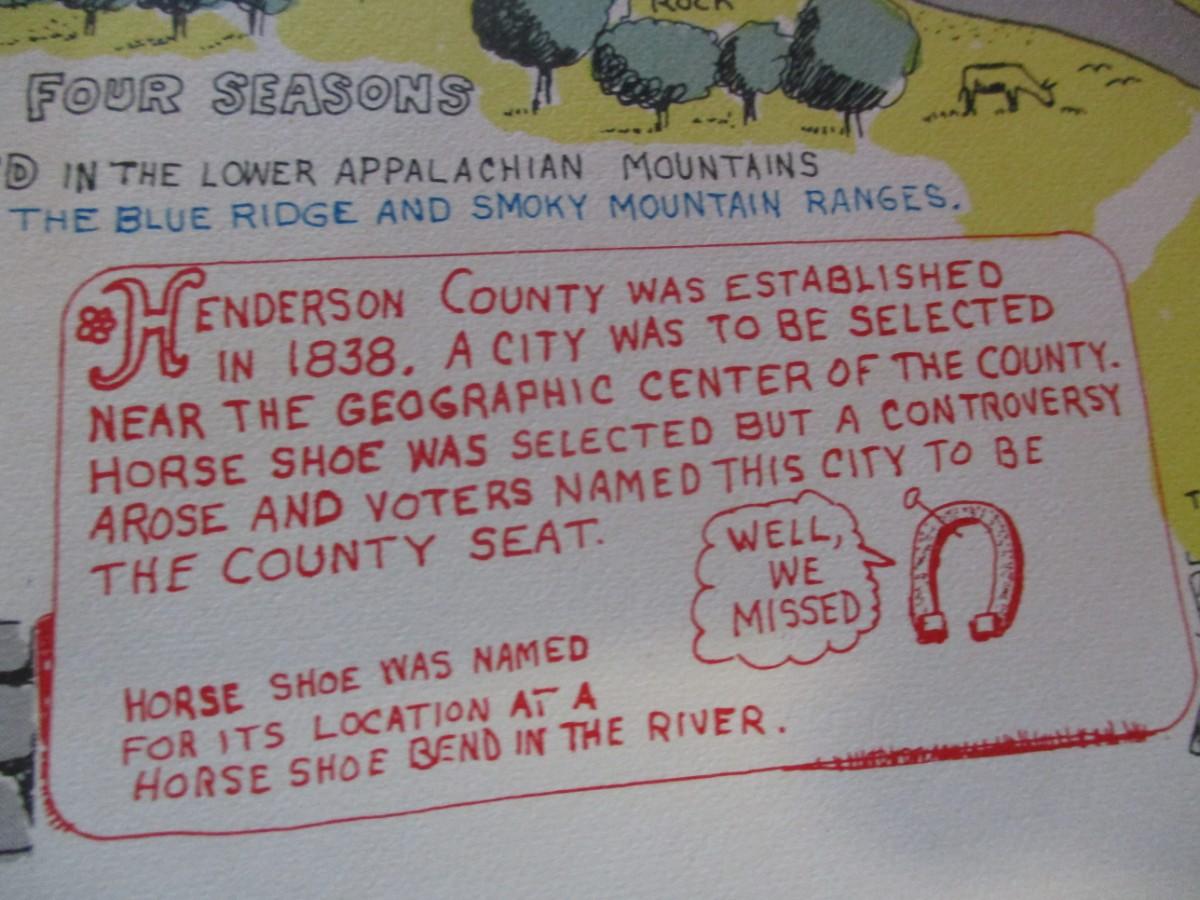 ROCK
FOUR SEASONS
D IN THE LOWER APPALACHIAN MOUNTAINS
THE BLUE RIDGE AND SMOKY MOUNTAIN RANGES.
HENDERSON COUNTY WAS ESTABLISHED
IN 1838. A CITY WAS TO BE SELECTED
NEAR THE GEOGRAPHIC CENTER OF THE COUNTY.
HORSE SHOE WAS SELECTED BUT A CONTROVERSY
AROSE AND VOTERS NAMED THIS CITY TO BE
THE COUNTY SEAT.
WELL,
WE
MISSED
HORSE SHOE WAS NAMED
FOR ITS LOCATION AT A
HORSE SHOE BEND IN THE RIVER.